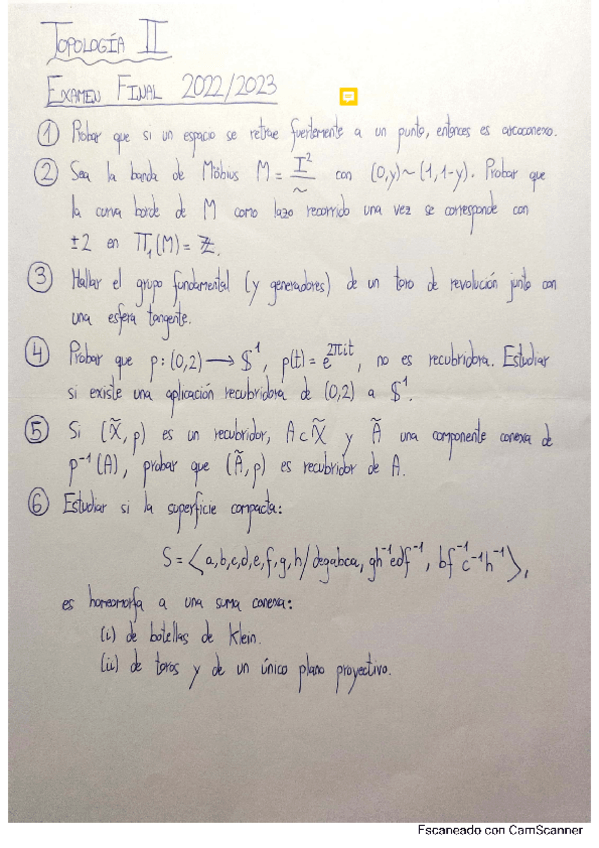 TOPOLOGÍA II
EXAMEN FINAL 2022/2023
① Probar que si un espacio se retrae fuertemente a un punto, entonces es arcoconexo.
② Sea la banda de Möbius M = I²/~ con (0,y)~(1,1-y). Probar que
la curva borde de M como lazo recorrido una vez se corresponde con
±2 en Π₁(M) = ℤ.
③ Hallar el grupo fundamental (y generadores) de un toro de revolución junto con
una esfera tangente.
④ Probar que p: (0,2) → 𝕊¹, p(t) = e^{2πit}, no es recubridora. Estudiar
si existe una aplicación recubridora de (0,2) a 𝕊¹.
⑤ Si (X̃, p) es un recubridor, A ⊂ X̃ y Ã una componente conexa de
p⁻¹(A), probar que (Ã, p) es recubridor de A.
⑥ Estudiar si la superficie compacta:
S = ⟨a,b,c,d,e,f,g,h / degabca, gh⁻¹edf⁻¹, bf⁻¹c⁻¹h⁻¹⟩,
es homeomorfa a una suma conexa:
(i) de botellas de Klein.
(ii) de toros y de un único plano proyectivo.
Escaneado con CamScanner